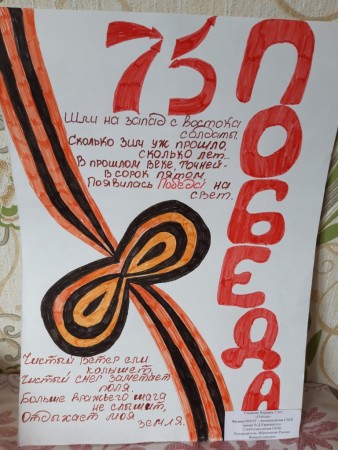 75
ПОБЕДА
Шли на запад с востока
солдаты.
Сколько зим уж прошло,
сколько лет...
В прошлом веке, точней -
в сорок пятом,
Появилась Победа на
свет.
Чистый ветер ели
колышет,
Чистый снег заметает
поля.
Больше вражьего шага
не слышит,
Отдыхает моя
земля.